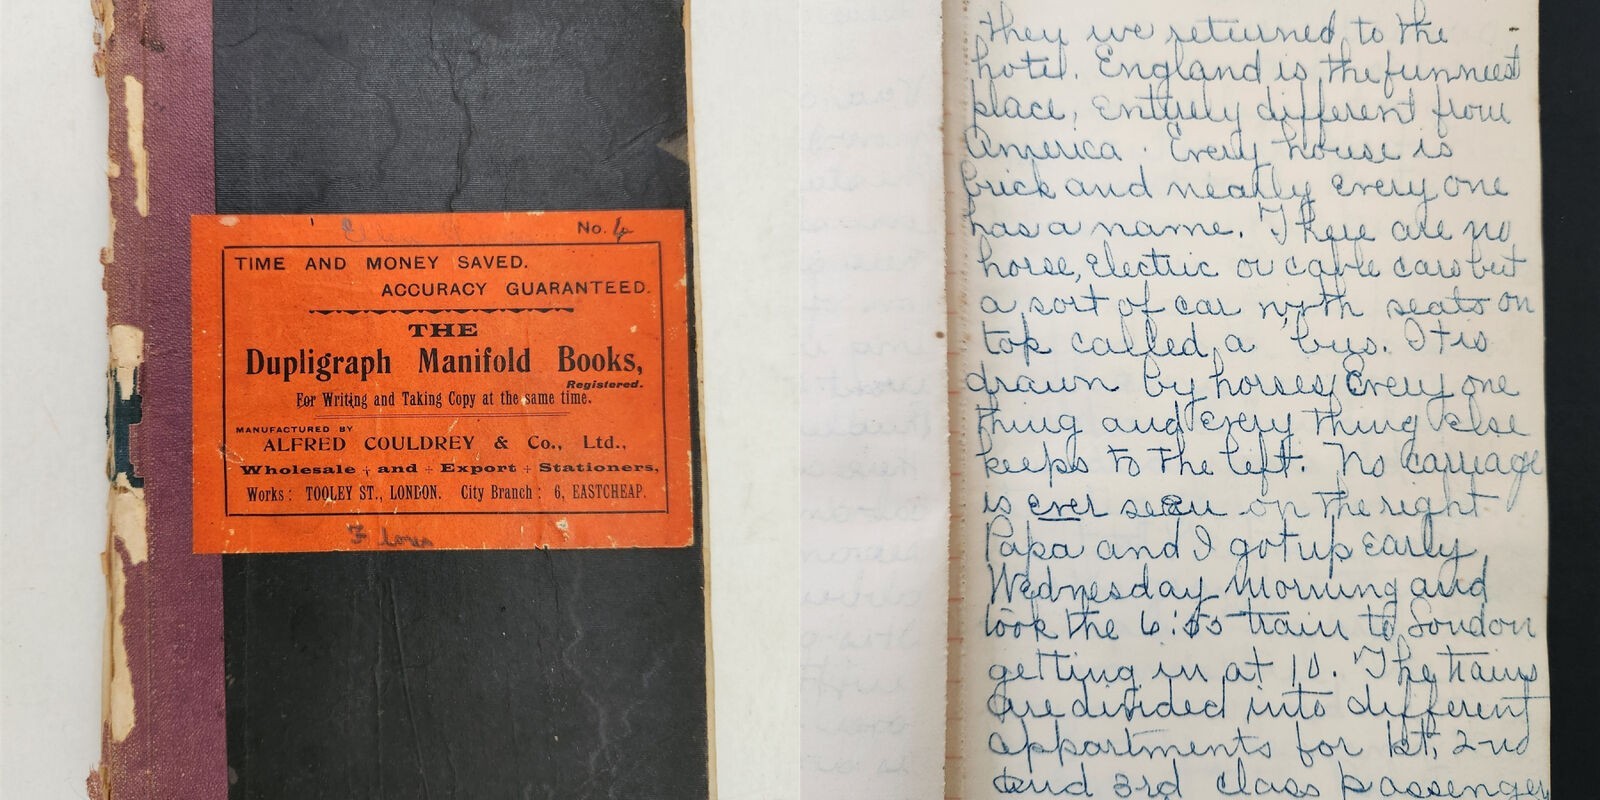 No. 4
TIME AND MONEY SAVED.
ACCURACY GUARANTEED.
THE
Dupligraph Manifold Books,
Registered.
For Writing and Taking Copy at the same time.
MANUFACTURED BY
ALFRED COULDREY & Co., Ltd.,
Wholesale and Export Stationers,
Works: TOOLEY ST., LONDON. City Branch: 6, EASTCHEAP.
they we returned to the
hotel. England is the funniest
place, entirely different from
America. Every house is
brick and nearly every one
has a name. There are no
horse, electric or cable cars but
a sort of car with seats on
top called a bus. It is
drawn by horses. Every one
thing and every thing else
keeps to the left. No carriage
is ever seen on the right
Papa and I got up early
Wednesday morning and
took the 6:55 train to London
getting in at 10. The trains
are divided into different
appartments for 1st, 2nd
and 3rd class passenger